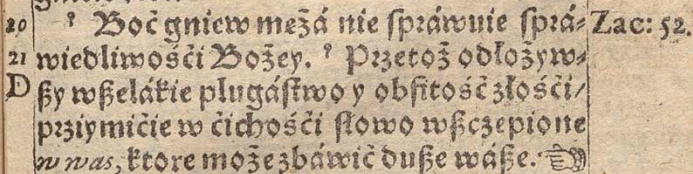 20 ⁹ Boć gniew mężá nie ſpráwuie ſprá⸗ Zac: 52.
21 wiedliwośći Bożey. ⁹ Przetoż odłożyw⸗
D ßy wßelákie plugáſtwo y obfitość złośći/
prziymićie w ćichośći ſłowo wßczepione
w was, ktore może zbáwić duße wáße. ☜